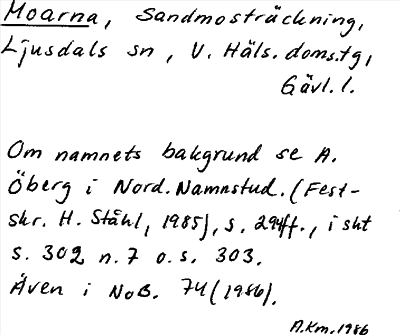 Moarna, Sandmosträckning,
Ljusdals sn, V. Häls. doms.tg,
Gävl. l.
Om namnets bakgrund se A.
Öberg i Nord. Namnstud. (Fest-
skr. H. Ståhl, 1985), s. 294ff., i sht
s. 302 n. 7 o. s. 303.
Även i NoB. 74 (1986).
A.Km. 1986